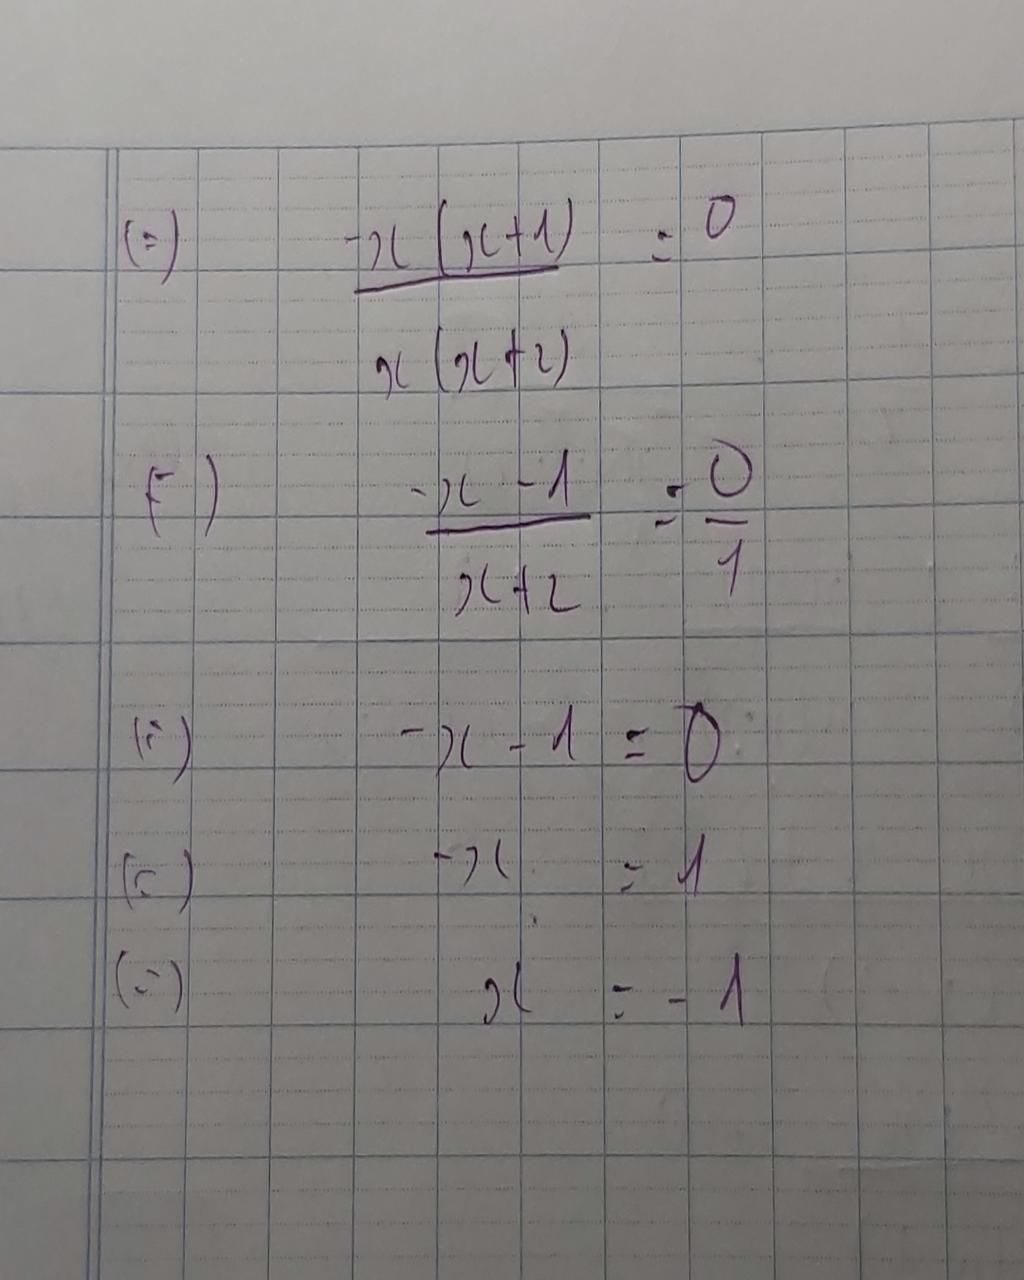 (=) -x(x+1) = 0
x(x+2)
(=) -x - 1 = 0
x+2 1
(=) -x - 1 = 0
(=) -x = 1
(=) x = - 1